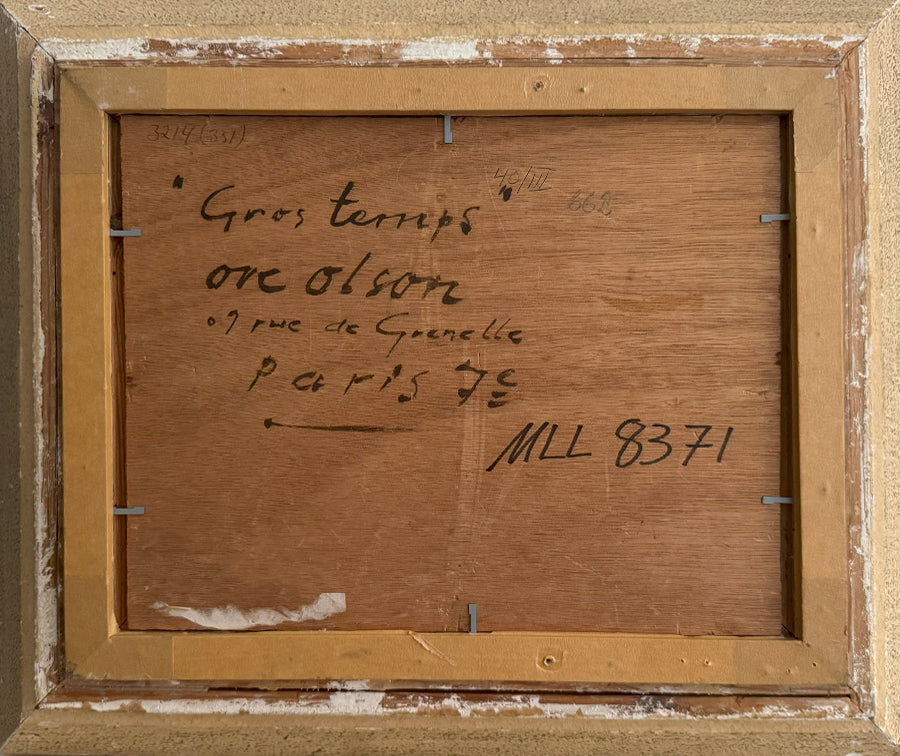 3214 (331)
40/III
"Gros temps"
ove olson
09 rue de Grenelle
Paris 7e
MLL 8371